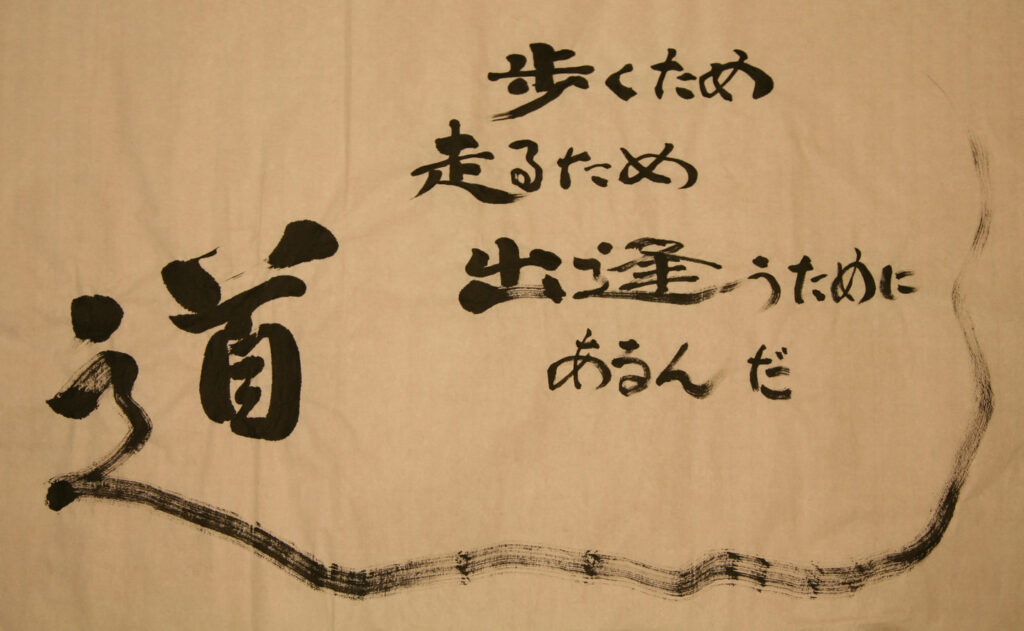 道
歩くため
走るため
出逢うために
あるんだ